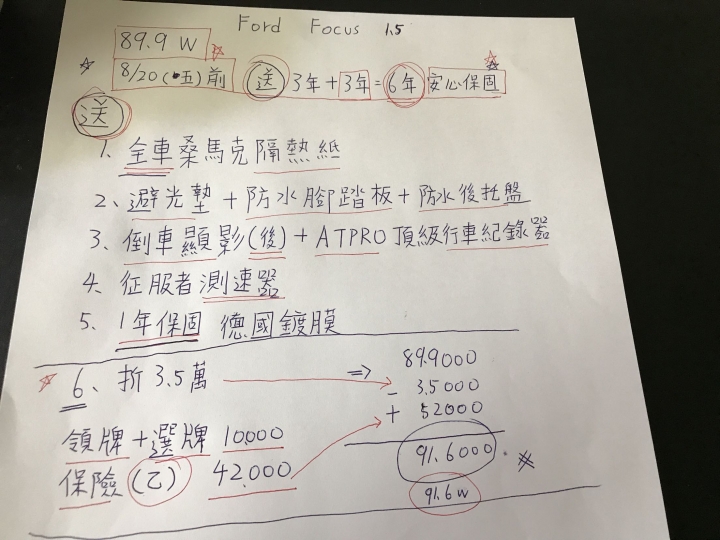 Ford Focus 1.5
89.9 W
8/20(五)前 送 3年+3年=6年安心保固
送
1、全車桑馬克隔熱紙
2、避光墊+防水腳踏板+防水後托盤
3、倒車顯影(後)+ATPRO頂級行車紀錄器
4、征服者測速器
5、1年保固 德國鍍膜
6、折3.5萬 => 89.9000
- 3.5000
+ 52000
領牌+選牌 10000
91.6000.
保險(乙) 42.000
91.6W